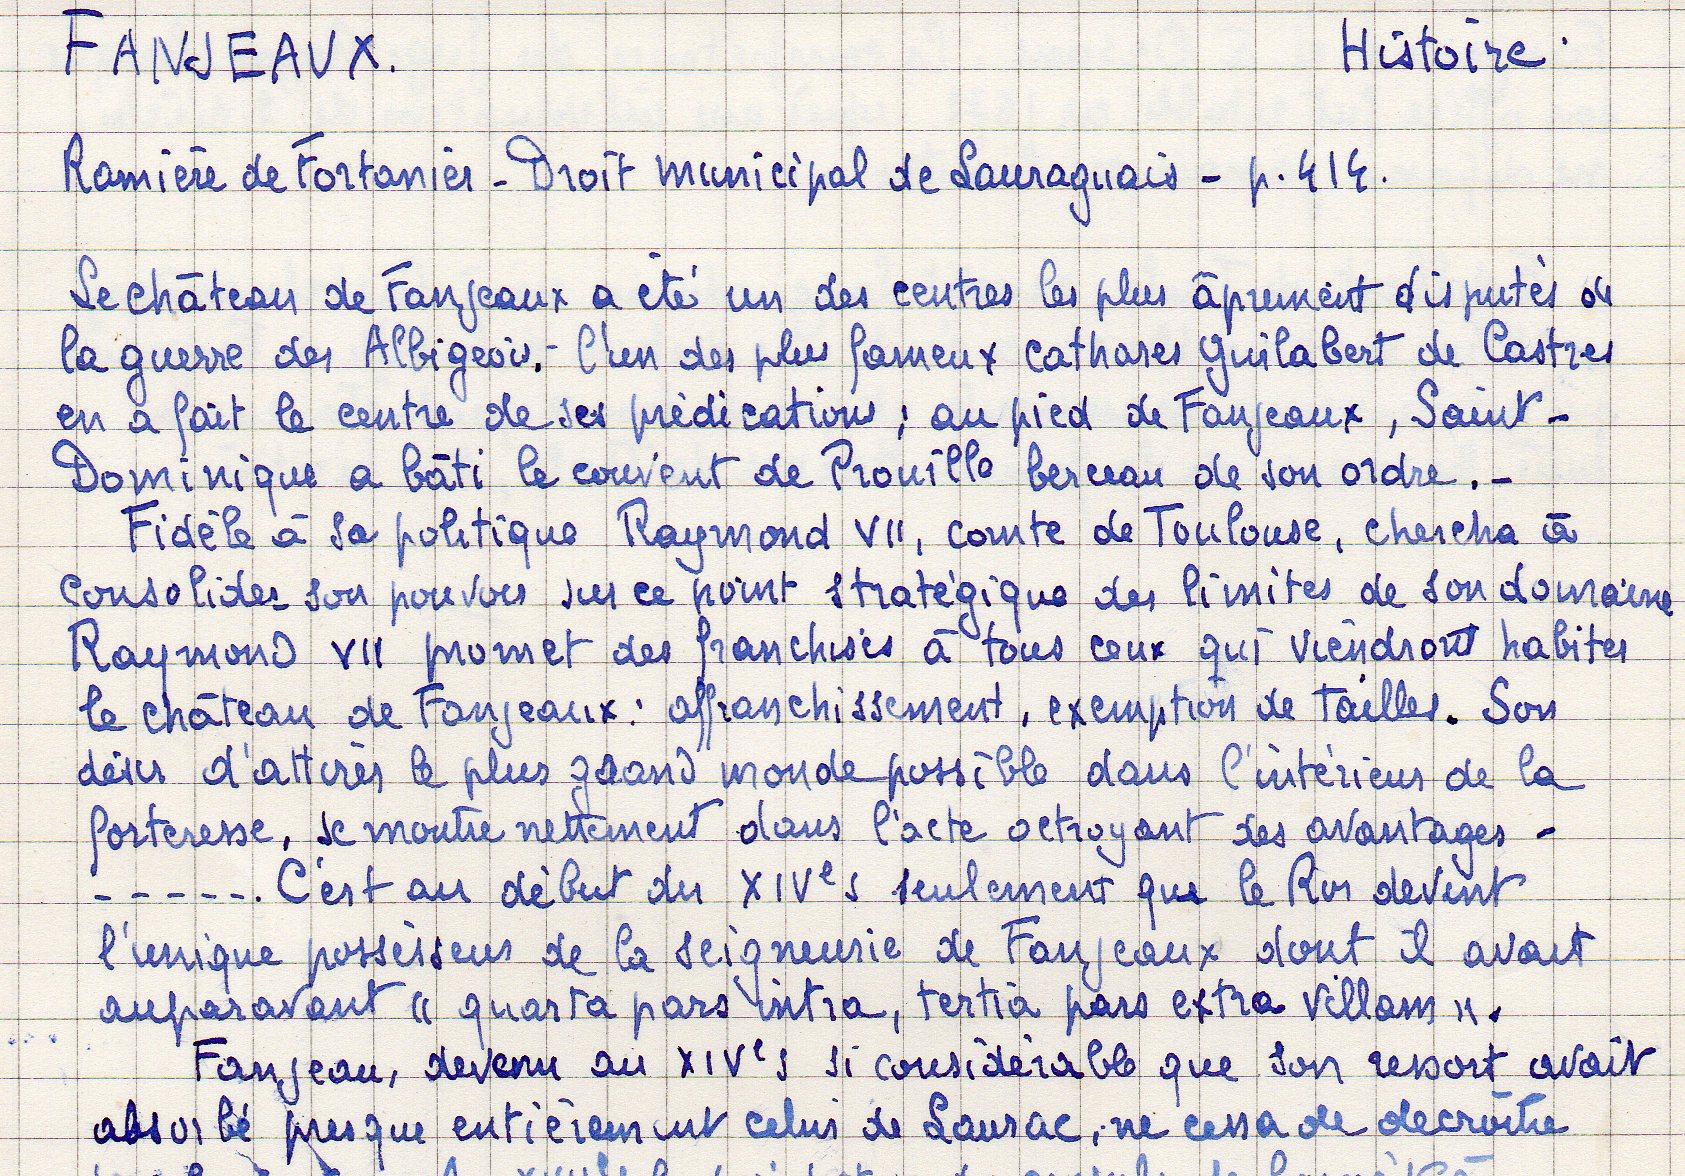 FANJEAUX. Histoire.
Ramière de Fortanier - Droit municipal de Lauraguais - p. 414.
Le château de Fanjeaux a été un des centres les plus âprement disputés de
la guerre des Albigeois.- l'un des plus fameux cathares Guilabert de Castres
en a fait le centre de ses prédications ; au pied de Fanjeaux, Saint-
Dominique a bâti le couvent de Prouille berceau de son ordre.-
Fidèle à sa politique Raymond VII, comte de Toulouse, chercha à
consolider son pouvoir sur ce point stratégique des limites de son domaine
Raymond VII promet des franchises à tous ceux qui viendront habiter
le château de Fanjeaux : affranchissement, exemption de tailles. Son
désir d'attirer le plus grand monde possible dans l'intérieur de la
forteresse, se montre nettement dans l'acte octroyant des avantages -
- - - - - -. C'est au début du XIVe s seulement que le Roi devint
l'unique possesseur de la seigneurie de Fanjeaux dont il avait
auparavant " quarta pars intra, tertia pars extra villam ".
Fanjeau, devenu au XIVe s si considérable que son ressort avait
absorbé presque entièrement celui de Laurac, ne cessa de decroître